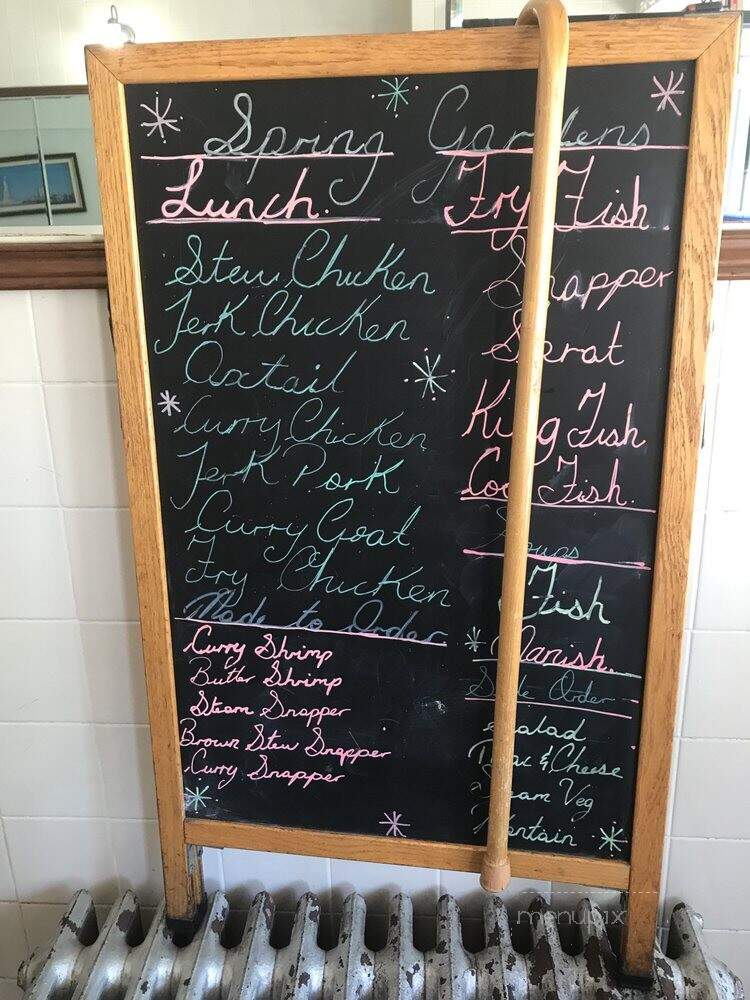 Spring Gardens
Lunch.
Stew Chicken
Jerk Chicken
Oxtail
Curry Chicken
Jerk Pork
Curry Goat
Fry Chicken
Made to Order
Curry Shrimp
Butter Shrimp
Steam Snapper
Brown Stew Snapper
Curry Snapper
Fry Fish.
Snapper
King Fish
Fish.
Soups
Fish
Side Order
Salad
& Cheese
Veg
menupix